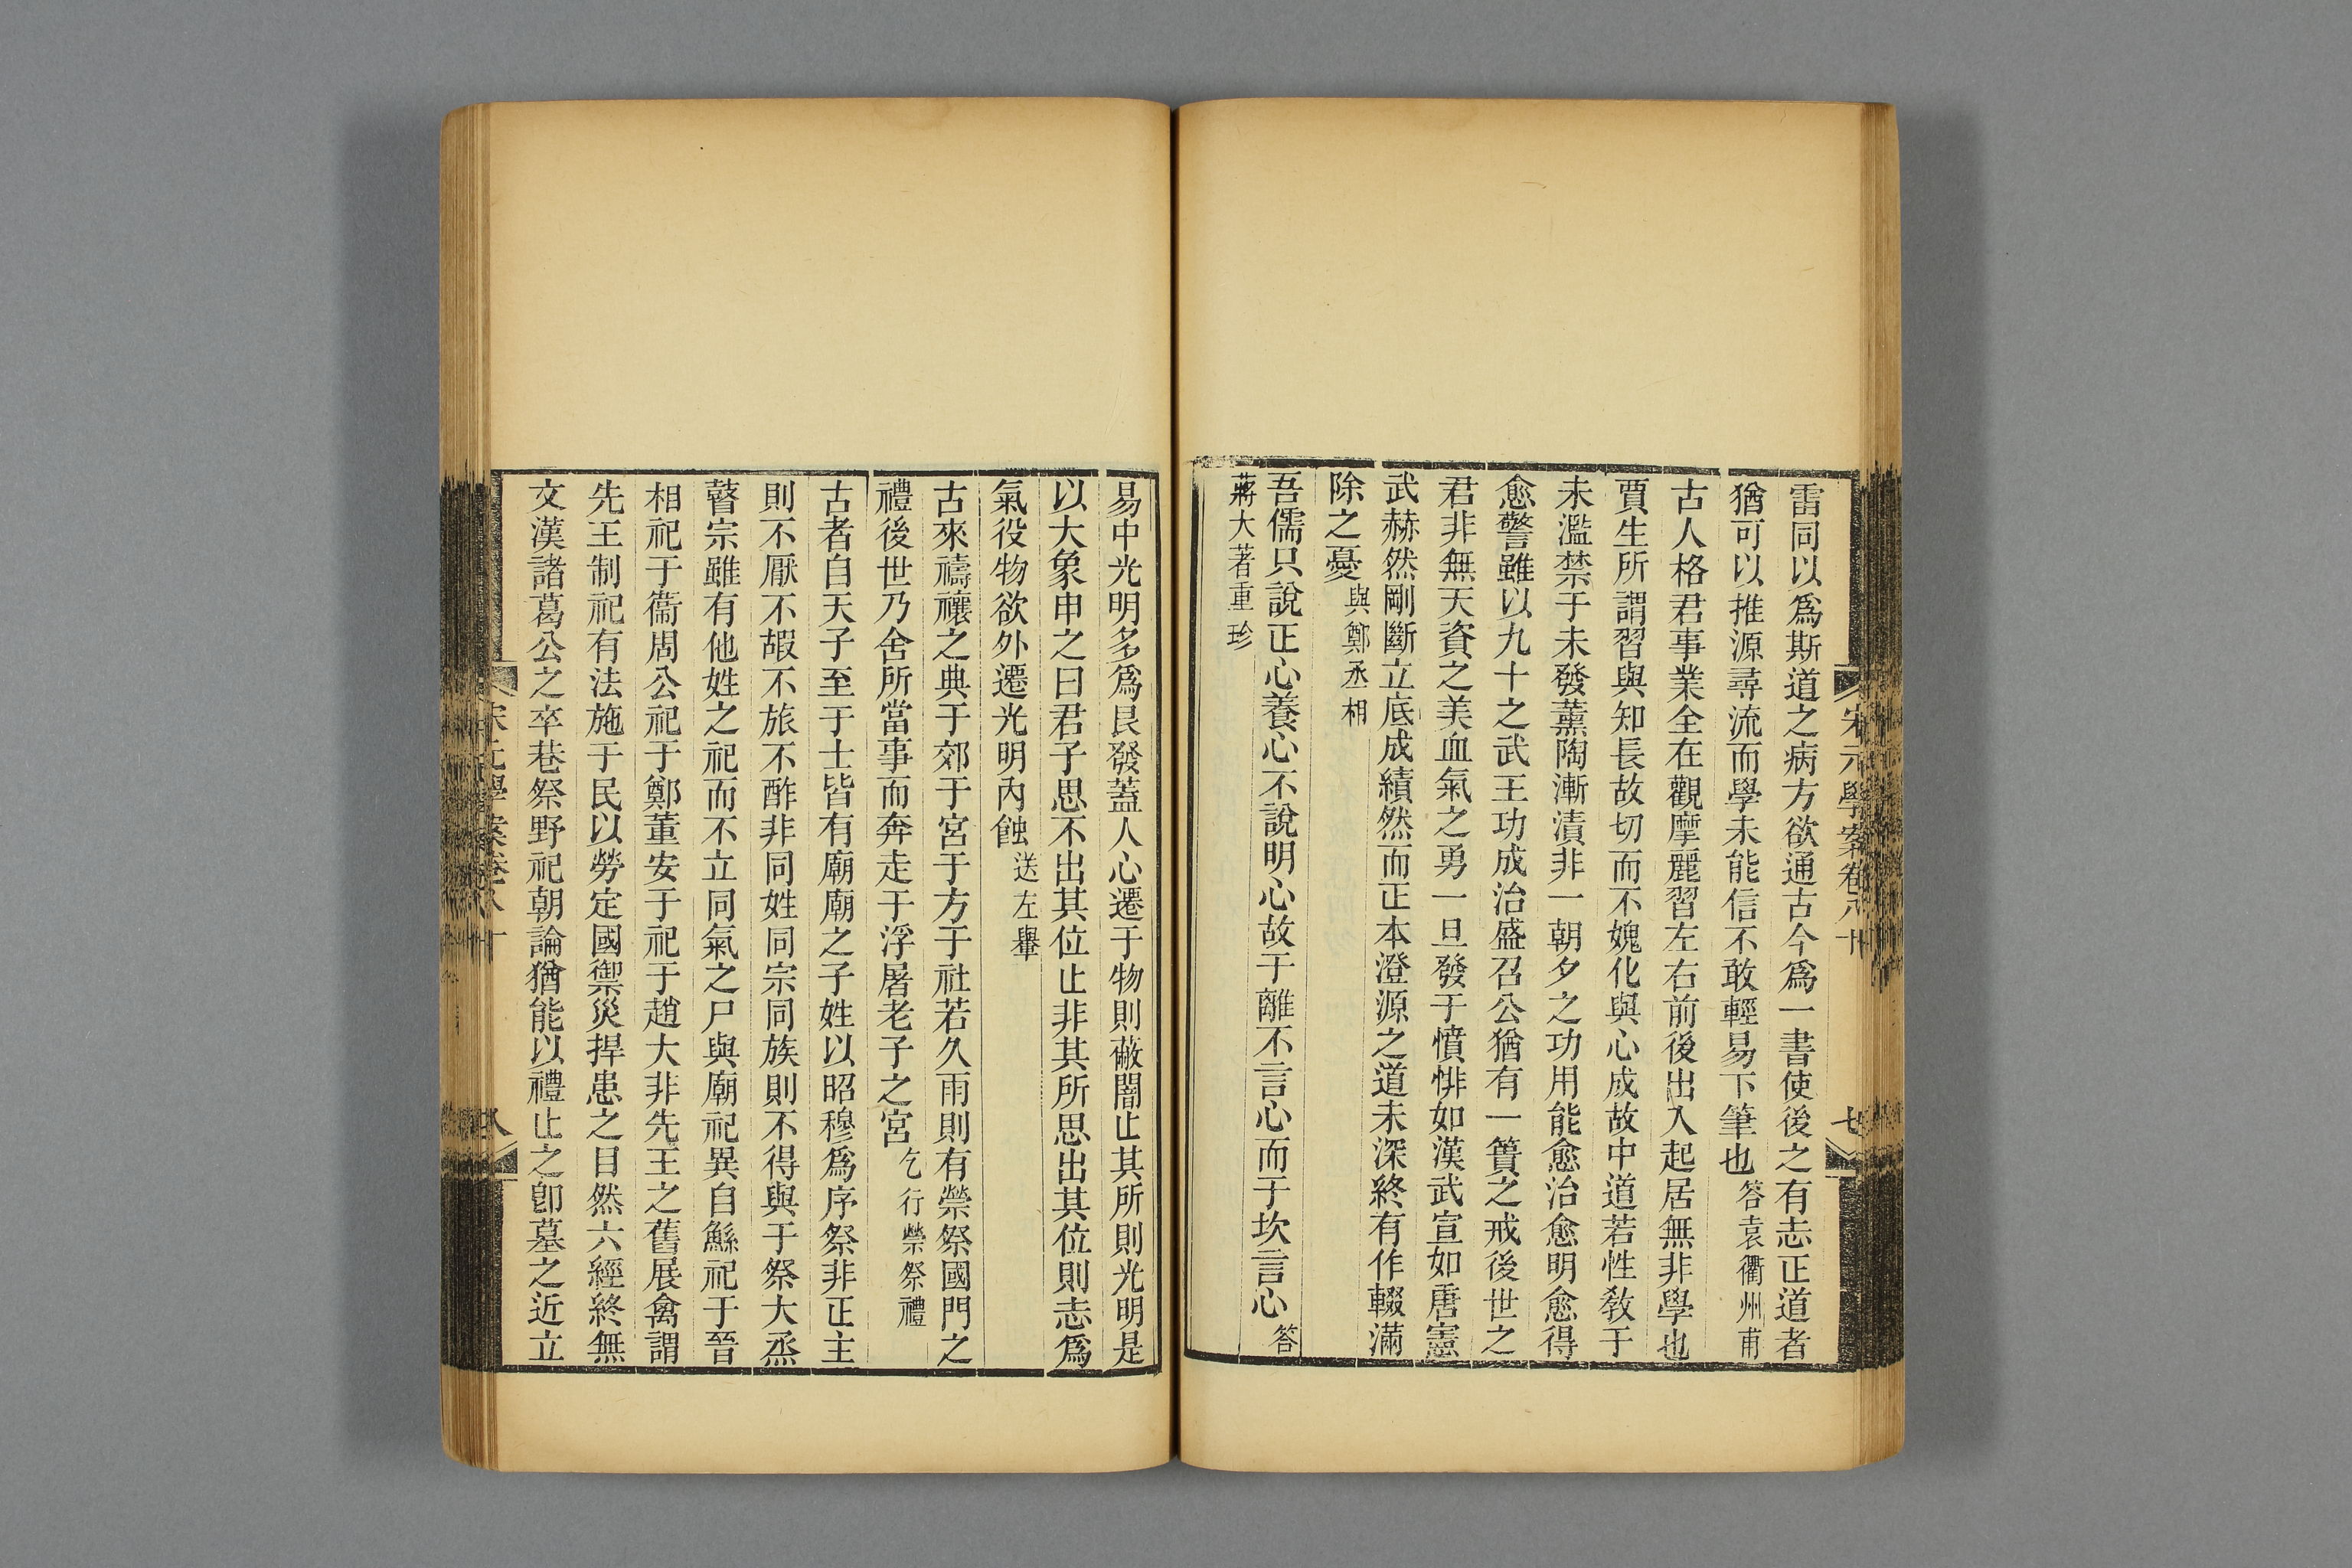 宋元學案卷八十
七
雷同以爲斯道之病方欲通古今爲一書使後之有志正道者
猶可以推源尋流而學未能信不敢輕易下筆也答袁衢州甫
古人格君事業全在觀摩麗習左右前後出入起居無非學也
賈生所謂習與知長故切而不媿化與心成故中道若性敎于
未濫禁于未發薰陶漸漬非一朝夕之功用能愈治愈明愈得
愈警雖以九十之武王功成治盛召公猶有一簣之戒後世之
君非無天資之美血氣之勇一旦發于憤悱如漢武宣如唐憲
武赫然剛斷立底成績然而正本澄源之道未深終有作輟滿
除之憂與鄭丞相
吾儒只說正心養心不說明心故于離不言心而于坎言心答
蔣大著重珍
易中光明多爲艮發蓋人心遷于物則蔽闇止其所則光明是
以大象申之曰君子思不出其位止非其所思出其位則志爲
氣役物欲外遷光明內蝕送左舉
古來禱禳之典于郊于宮于方于社若久雨則有禜祭國門之
禮後世乃舍所當事而奔走于浮屠老子之宮乞行禜祭禮
古者自天子至于士皆有廟廟之子姓以昭穆爲序祭非正主
則不厭不嘏不旅不酢非同姓同宗同族則不得與于祭大烝
瞽宗雖有他姓之祀而不立同氣之尸與廟祀異自鯀祀于晉
相祀于衞周公祀于鄭董安于祀于趙大非先王之舊展禽謂
先王制祀有法施于民以勞定國禦災捍患之目然六經終無
文漢諸葛公之卒巷祭野祀朝論猶能以禮止之卽墓之近立
宋元學案卷八十
八